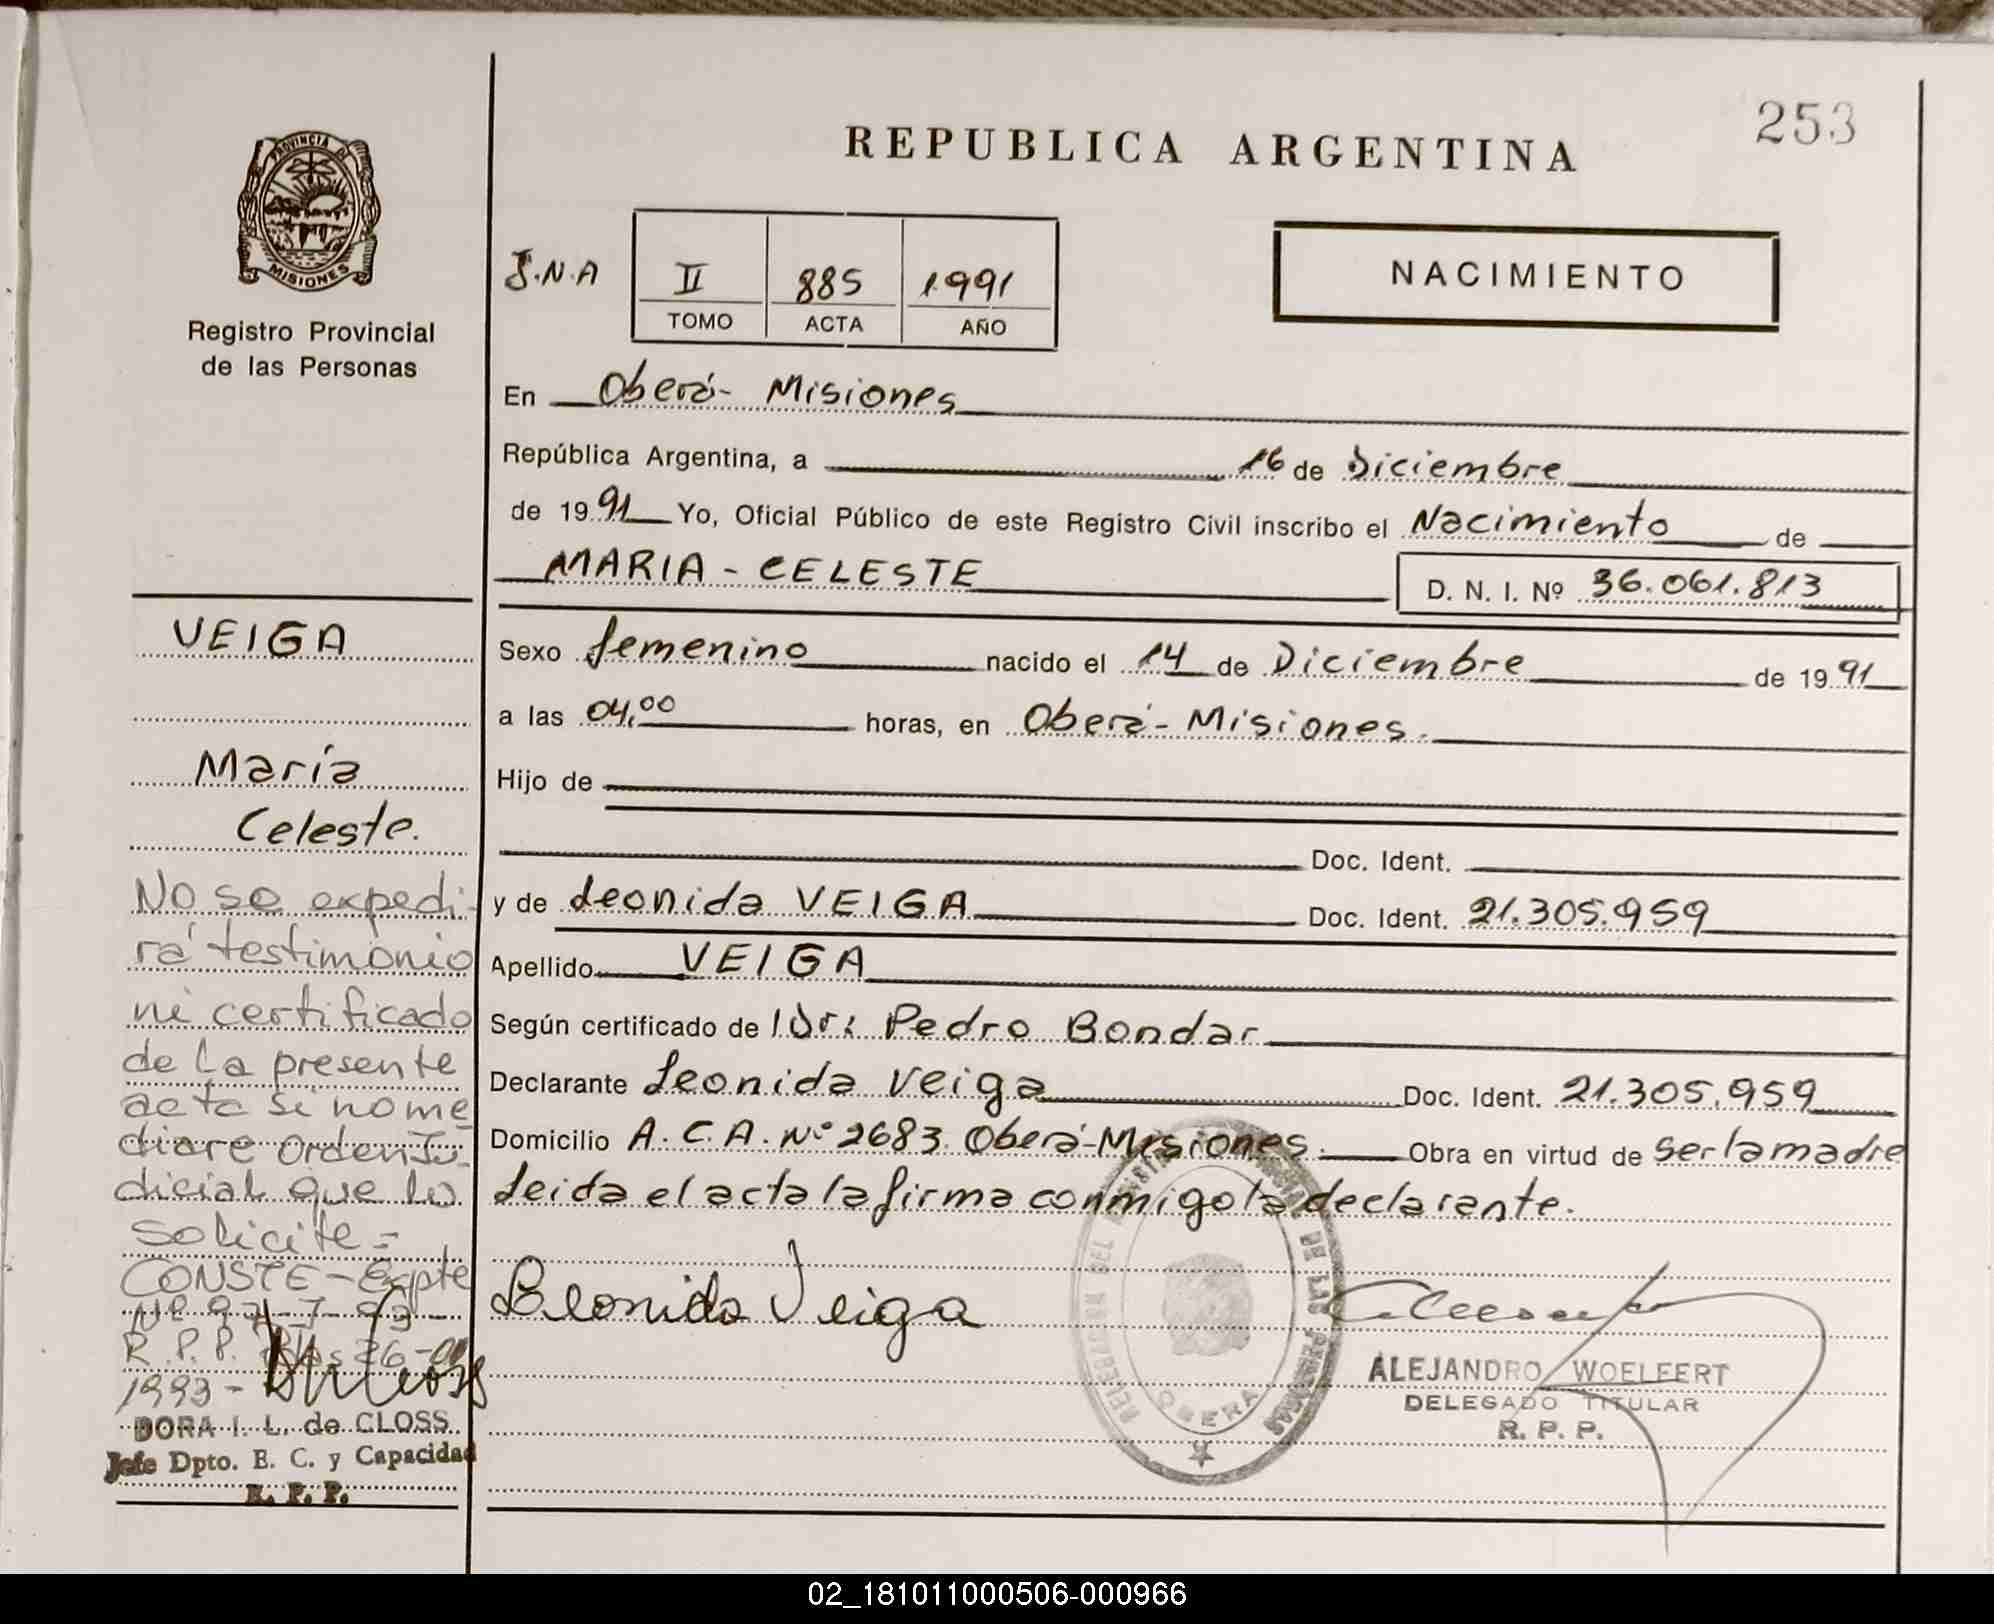 253
REPUBLICA ARGENTINA
PROVINCIA DE
MISIONES
Registro Provincial
de las Personas
J.N.A
II 885 1991
TOMO ACTA AÑO
NACIMIENTO
En Oberá- Misiones
República Argentina, a 16 de Diciembre
de 1991 Yo, Oficial Público de este Registro Civil inscribo el Nacimiento de
MARIA - CELESTE D. N. I. Nº 36.061.813
Sexo femenino nacido el 14 de Diciembre de 1991
a las 04,00 horas, en Oberá - Misiones.
Hijo de
Doc. Ident.
y de Leonida VEIGA Doc. Ident. 21.305.959
Apellido VEIGA
Según certificado de Dr: Pedro Bondar
Declarante Leonida Veiga Doc. Ident. 21.305.959
Domicilio A.C.A. Nº 2683. Oberá-Misiones. Obra en virtud de ser la madre
Leida el acta la firma conmigo la declarante.
Leonida Veiga
OBERA
ALEJANDRO WOELFERT
DELEGADO TITULAR
R. P. P.
VEIGA
María
Celeste.
No se expedi-
rá testimonio
ni certificado
de la presente
acta si no me
diare orden Ju-
dicial que lo
solicite =
CONSTE - Expte
R.P.P.
1993 -
DORA I. L. de CLOSS
Jefe Dpto. E. C. y Capacidad
R. P. P.
02_181011000506-000966